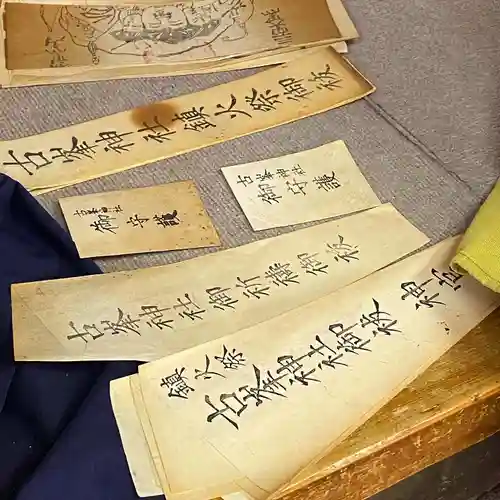 古峯神社鎮火祭御板
古峯神社
御守護
古峯神社
御守護
古峯神社御祈祷御板
鎮火祭
古峯神社御板
神